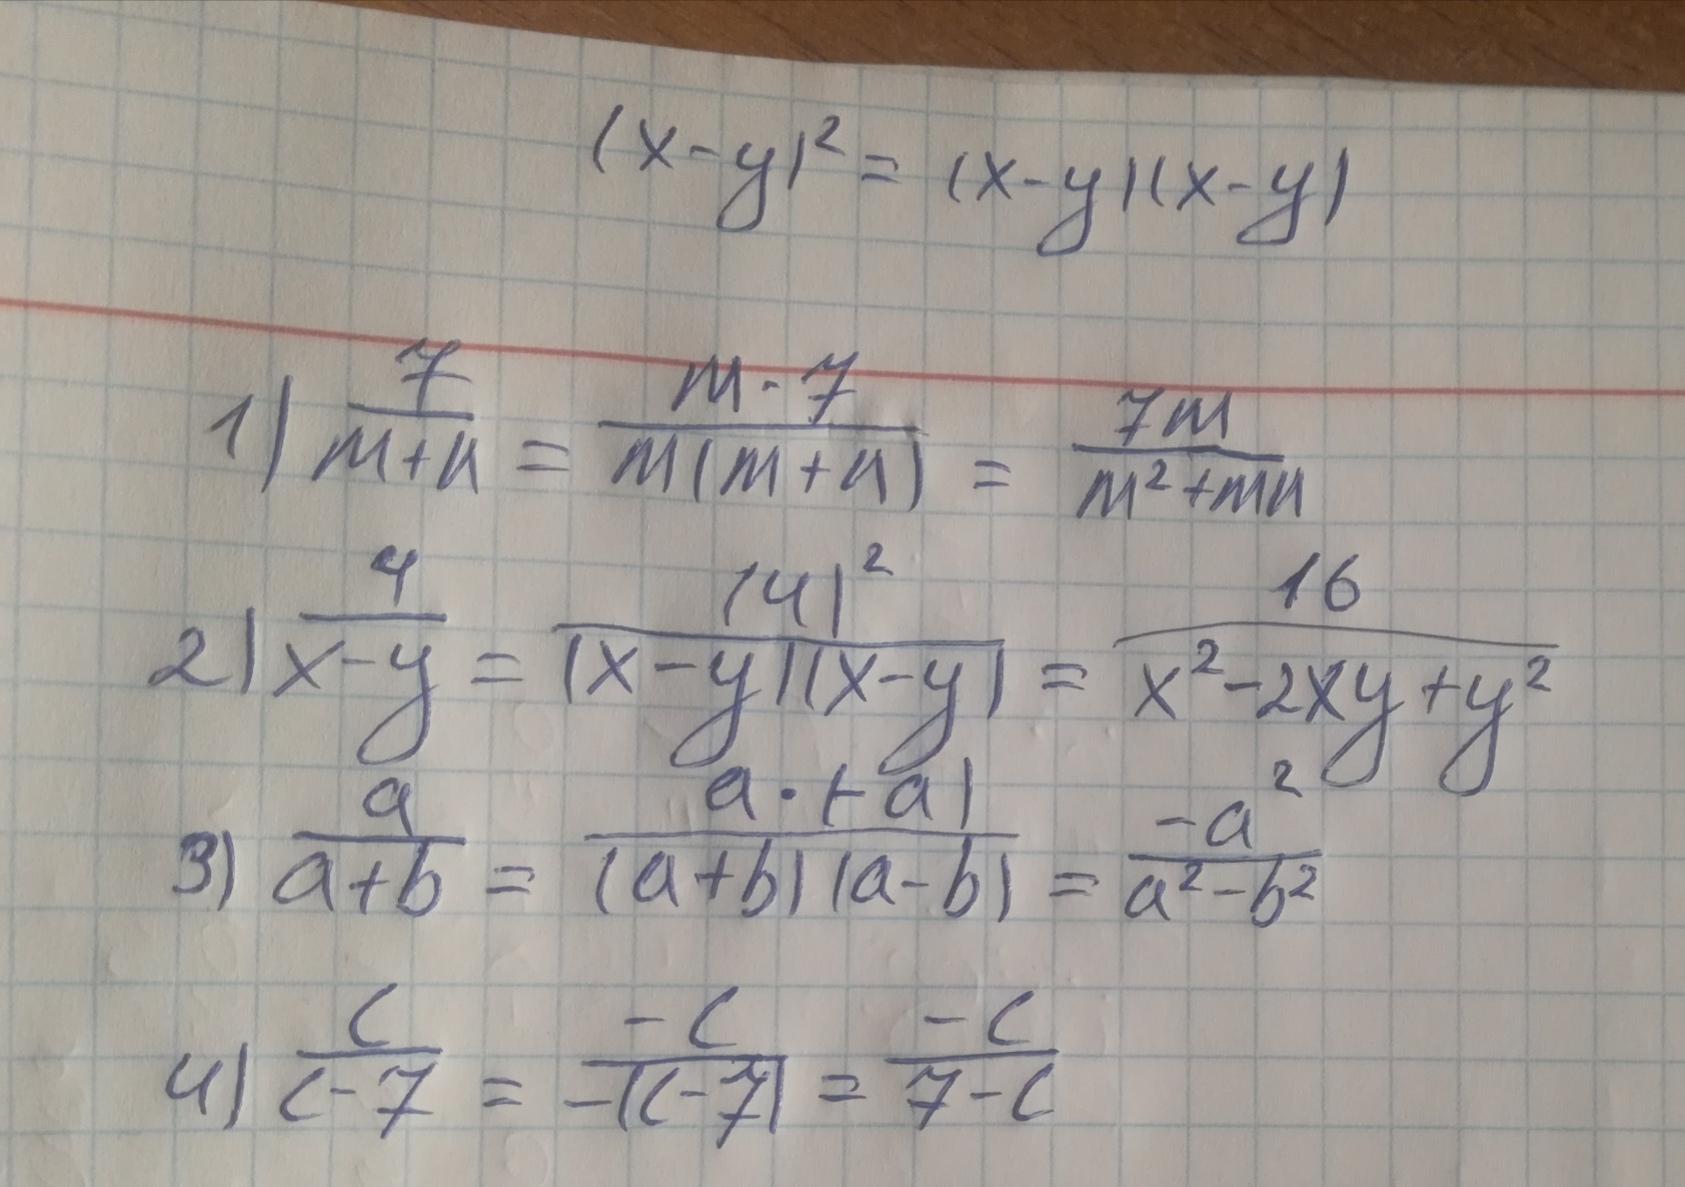 (x-y)² = (x-y)(x-y)
1) 7/(m+n) = (m·7)/(m(m+n)) = 7m/(m²+mn)
2) 4/(x-y) = (4)²/((x-y)(x-y)) = 16/(x²-2xy+y²)
3) a/(a+b) = (a·(-a))/((a+b)(a-b)) = -a²/(a²-b²)
4) c/(c-7) = -c/(-(c-7)) = -c/(7-c)